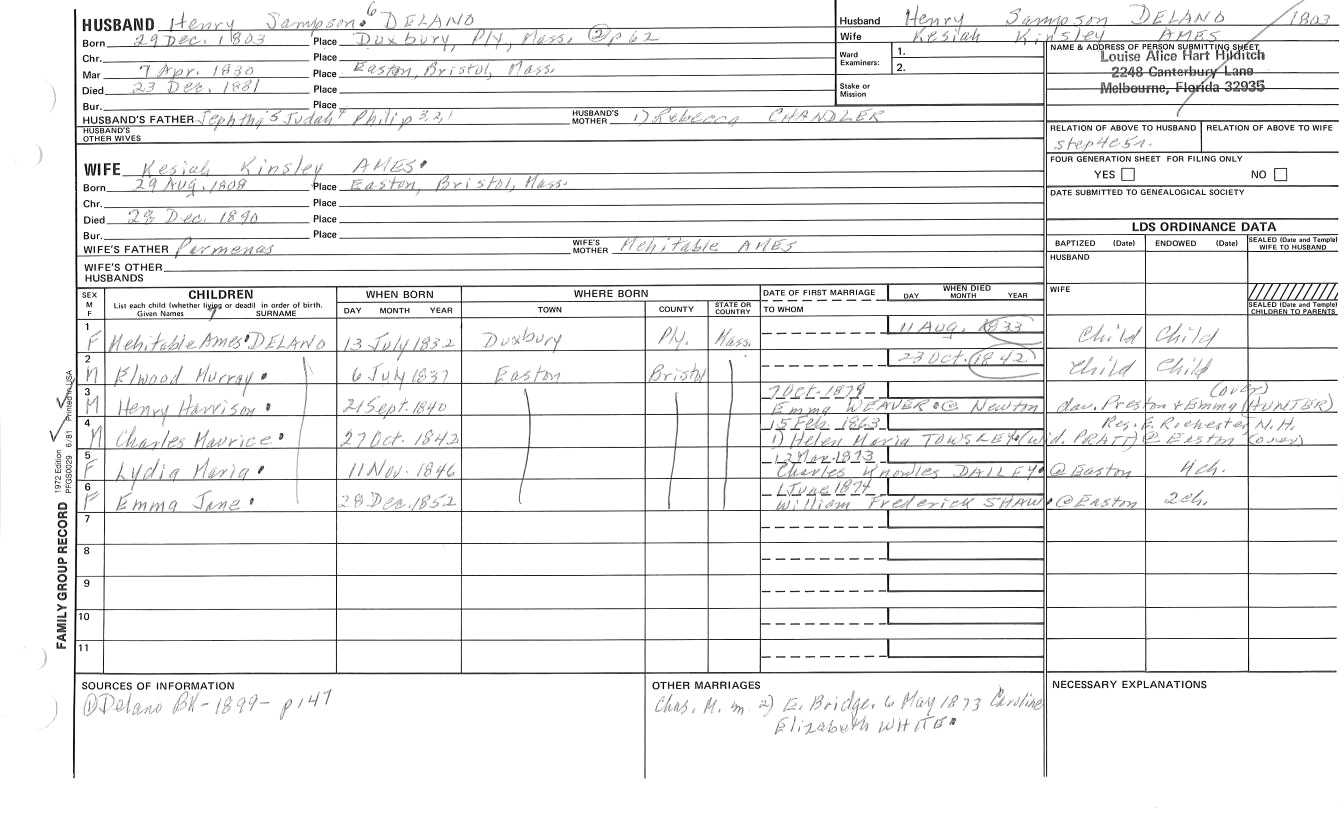 HUSBAND Henry Sampson 6 DELANO
Born 29 Dec. 1803 Place Duxbury, Ply, Mass. ② p 62
Chr. Place
Mar 7 Apr. 1830 Place Easton, Bristol, Mass.
Died 23 Dec. 1881 Place
Bur. Place
HUSBAND'S FATHER Jephtha 5 Judah 4 Philip 3,2,1 HUSBAND'S MOTHER 1) Rebecca CHANDLER
HUSBAND'S OTHER WIVES
Husband Henry Sampson DELANO 1803
Wife Kesiah Kinsley AMES
Ward Examiners: 1.
2.
Stake or Mission
NAME & ADDRESS OF PERSON SUBMITTING SHEET
Louise Alice Hart Hilditch
2248 Canterbury Lane
Melbourne, Florida 32935
RELATION OF ABOVE TO HUSBAND RELATION OF ABOVE TO WIFE
FOUR GENERATION SHEET FOR FILING ONLY
YES NO
DATE SUBMITTED TO GENEALOGICAL SOCIETY
WIFE Kesiah Kinsley AMES
Born 29 Aug. 1808 Place Easton, Bristol, Mass.
Chr. Place
Died Dec. 1890 Place
Bur. Place
WIFE'S FATHER Parmenas WIFE'S MOTHER Mehitable AMES
WIFE'S OTHER HUSBANDS
LDS ORDINANCE DATA
BAPTIZED (Date) ENDOWED (Date) SEALED (Date and Temple) WIFE TO HUSBAND
HUSBAND
WIFE
SEALED (Date and Temple) CHILDREN TO PARENTS
SEX M F CHILDREN WHEN BORN WHERE BORN DATE OF FIRST MARRIAGE WHEN DIED
List each child (whether living or dead) in order of birth. Given Names SURNAME DAY MONTH YEAR TOWN COUNTY STATE OR COUNTRY TO WHOM DAY MONTH YEAR
1 F Mehitable Ames DELANO 13 July 1832 Duxbury Ply. Mass. 11 Aug. 1833 Child Child
2 M Elwood Murray 6 July 1837 Easton Bristol 23 Oct. 1842 Child Child
3 M Henry Harrison 21 Sept. 1840 7 Oct. 1879 (over)
Emma WEAVER @ Newton dau. Preston & Emma (HUNTER)
4 M Charles Maurice 27 Oct. 1842 15 Feb. 1863 Res. E. Rochester N.H.
1) Helen Maria TOWSLEY (wid. PRATT) @ Easton (over)
5 F Lydia Maria 11 Nov. 1846 12 Mar. 1873
Charles Knowles DAILEY @ Easton 4 ch.
6 F Emma Jane 28 Dec. 1852 1 June 1874
William Frederick SHAW @ Easton 2 ch.
7
8
9
10
11
FAMILY GROUP RECORD 1972 Edition PFGS0029 6/81 Printed in USA
SOURCES OF INFORMATION
① Delano BK - 1899 - p 147
OTHER MARRIAGES
Chas. M. m. 2) E. Bridge. 6 May 1873 Caroline
Elizabeth WHITE
NECESSARY EXPLANATIONS